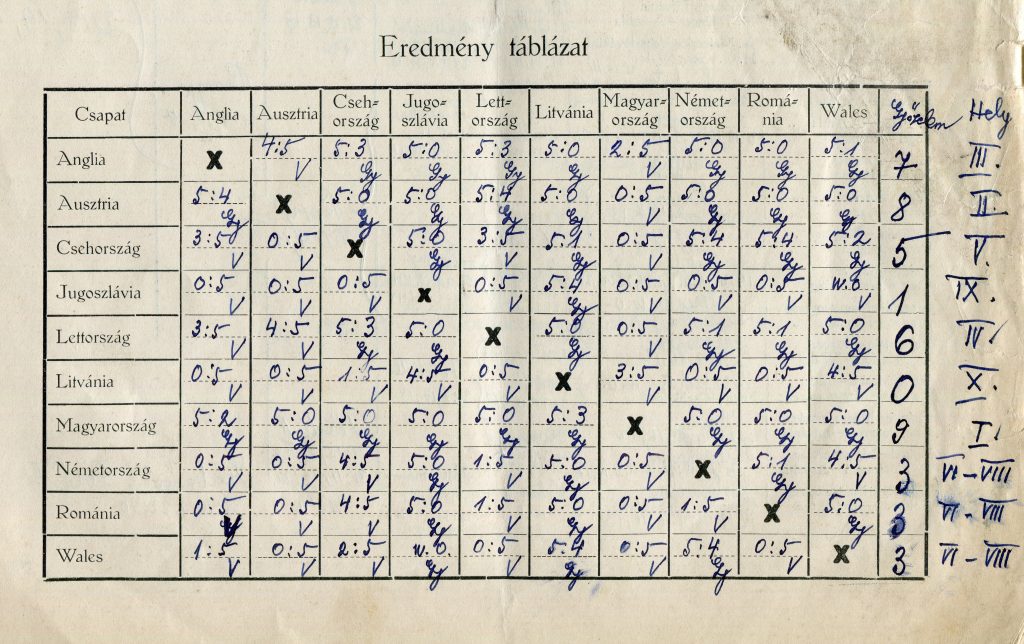 Eredmény táblázat
Csapat Anglia Ausztria Cseh=ország Jugo=szlávia Lett=ország Litvánia Magyar=ország Német=ország Romá=nia Wales Győzelem Hely
Anglia X 4:5 V 5:3 Gy 5:0 Gy 5:3 Gy 5:0 Gy 2:5 V 5:0 Gy 5:0 Gy 5:1 Gy 7 III.
Ausztria 5:4 Gy X 5:0 Gy 5:0 Gy 5:4 Gy 5:0 Gy 0:5 V 5:0 Gy 5:0 Gy 5:0 Gy 8 II.
Csehország 3:5 V 0:5 V X 5:0 Gy 3:5 V 5:1 Gy 0:5 V 5:4 Gy 5:4 Gy 5:2 Gy 5 V.
Jugoszlávia 0:5 V 0:5 V 0:5 V X 0:5 V 5:4 Gy 0:5 V 0:5 V 0:5 V w.o V 1 IX.
Lettország 3:5 V 4:5 V 5:3 Gy 5:0 Gy X 5:0 Gy 0:5 V 5:1 Gy 5:1 Gy 5:0 Gy 6 IV.
Litvánia 0:5 V 0:5 V 1:5 V 4:5 V 0:5 V X 3:5 V 0:5 V 0:5 V 4:5 V 0 X.
Magyarország 5:2 Gy 5:0 Gy 5:0 Gy 5:0 Gy 5:0 Gy 5:3 Gy X 5:0 Gy 5:0 Gy 5:0 Gy 9 I.
Németország 0:5 V 0:5 V 4:5 V 5:0 Gy 1:5 V 5:0 Gy 0:5 V X 5:1 Gy 4:5 V 3 VI-VIII
Románia 0:5 V 0:5 V 4:5 V 5:0 Gy 1:5 V 5:0 Gy 0:5 V 1:5 V X 5:0 Gy 3 VI-VIII
Wales 1:5 V 0:5 V 2:5 V w.o. Gy 0:5 V 5:4 Gy 0:5 V 5:4 Gy 0:5 V X 3 VI-VIII